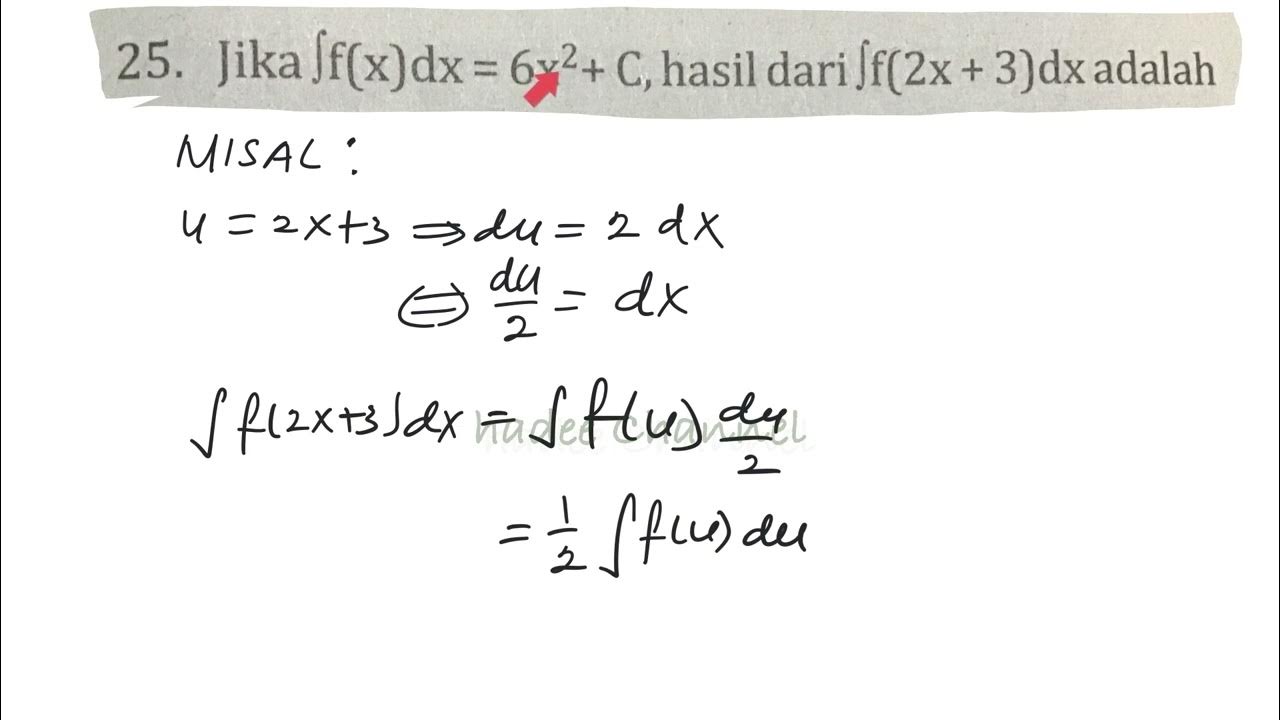 25. Jika ∫f(x)dx = 6x²+ C, hasil dari ∫f(2x + 3)dx adalah
MISAL :
u = 2x+3 ⇒ du = 2 dx
⇔ du/2 = dx
∫ f(2x+3)dx = ∫ f(u) du/2
hadee channel
= 1/2 ∫ f(u) du